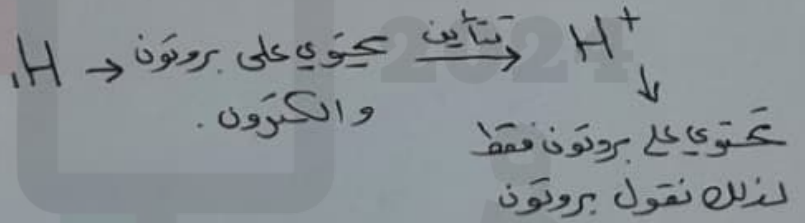 ₁H → يحتوي على بروتون تتأين → H⁺
والكترون .
↓
تحتوي على بروتون فقط
لذلك نقول بروتون
2024